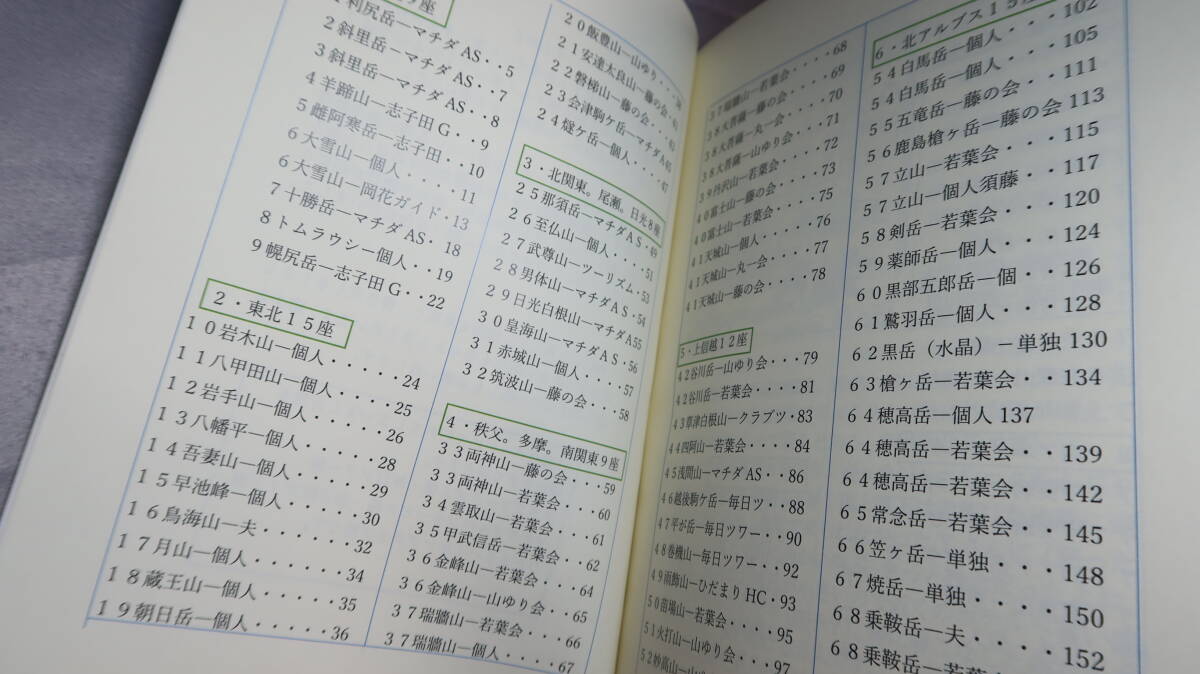 9座
1利尻岳ーマチダAS・・5
2斜里岳ーマチダAS・・7
3斜里岳ーマチダAS・・8
4羊蹄山ー志子田G・・9
5雌阿寒岳ー志子田・・10
6大雪山ー個人・・・・11
6大雪山ー岡花ガイド・13
7十勝岳ーマチダAS・18
8トムラウシー個人・・19
9幌尻岳ー志子田G・・22
2・東北15座
10岩木山ー個人・・・・・24
11八甲田山ー個人・・・・25
12岩手山ー個人・・・・・26
13八幡平ー個人・・・・・28
14吾妻山ー個人・・・・・29
15早池峰ー個人・・・・・30
16鳥海山ー夫・・・・・・32
17月山ー個人・・・・・・34
18蔵王山ー個人・・・・・35
19朝日岳ー個人・・・・・36
20飯豊山ー山ゆり・・・
21安達太良山ー藤の会・
22磐梯山ー藤の会・・・
23会津駒ケ岳ーマチダA
24燧ケ岳ー個人・・・・47
3・北関東。尾瀬。日光8座
25那須岳ーマチダAS・49
26至仏山ー個人・・・・51
27武尊山ーツーリズム・53
28男体山ーマチダAS・54
29日光白根山ーマチダA55
30皇海山ーマチダAS・56
31赤城山ー個人・・・・57
32筑波山ー藤の会・・・58
4・秩父。多摩。南関東9座
33両神山ー藤の会・・・59
33両神山ー若葉会・・・60
34雲取山ー若葉会・・・61
35甲武信岳ー若葉会・・62
36金峰山ー若葉会・・・64
36金峰山ー山ゆり会・・65
37瑞牆山ー若葉会・・・66
37瑞牆山ー個人・・・・67
37瑞牆山ー若葉会・・・・68
38大菩薩ー藤の会・・・・69
38大菩薩ー丸一会・・・・70
38大菩薩ー山ゆり会・・・71
39丹沢山ー若葉会・・・・72
40富士山ー藤の会・・・・73
40富士山ー若葉会・・・・75
41天城山ー個人・・・・・76
41天城山ー丸一会・・・・77
41天城山ー藤の会・・・・78
5・上信越12座
42谷川岳ー山ゆり会・・・79
42谷川岳ー若葉会・・・・81
43草津白根山ークラブツ・83
44四阿山ー若葉会・・・・84
45浅間山ーマチダAS・・86
46越後駒ケ岳ー毎日ツ・・88
47平が岳ー毎日ツワー・・90
48巻機山ー毎日ツワー・・92
49雨飾山ーひだまりHC・93
50苗場山ー若葉会・・・・95
51火打山ー山ゆり会・・・97
52妙高山ー山
6・北アルプス15座
54白馬岳ー個人・・・102
54白馬岳ー個人・・・105
55五竜岳ー藤の会・・111
56鹿島槍ヶ岳ー藤の会113
57立山ー若葉会・・・115
57立山ー個人須藤・・117
58剣岳ー若葉会・・・120
59薬師岳ー個人・・・124
60黒部五郎岳ー個・・126
61鷲羽岳ー個人・・・128
62黒岳（水晶）－単独130
63槍ヶ岳ー若葉会・・134
64穂高岳ー個人137
64穂高岳ー若葉会・・139
64穂高岳ー若葉会・・142
65常念岳ー若葉会・・145
66笠ヶ岳ー単独・・・148
67焼岳ー単独・・・・150
68乗鞍岳ー夫・・・・152
68乗鞍岳ー若葉